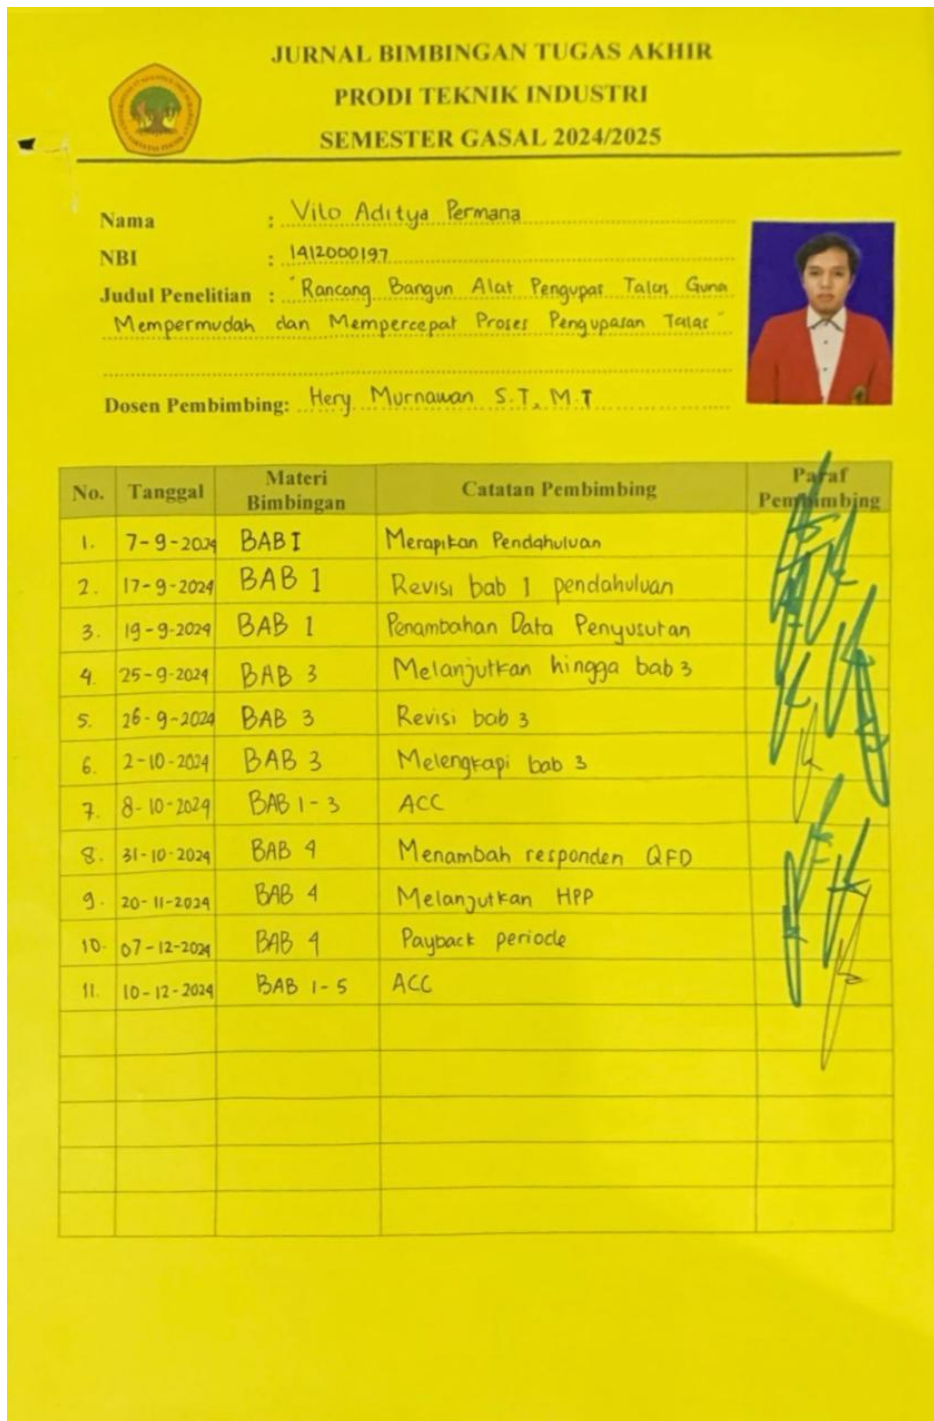 JURNAL BIMBINGAN TUGAS AKHIR
PRODI TEKNIK INDUSTRI
SEMESTER GASAL 2024/2025
Nama : Vilo Aditya Permana
NBI : 1412000197
Judul Penelitian : "Rancang Bangun Alat Pengupas Talas Guna
Mempermudah dan Mempercepat Proses Pengupasan Talas"
Dosen Pembimbing: Hery Murnawan S.T, M.T
No. Tanggal Materi Bimbingan Catatan Pembimbing Paraf Pembimbing
1. 7-9-2024 BAB I Merapikan Pendahuluan
2. 17-9-2024 BAB 1 Revisi bab 1 pendahuluan
3. 19-9-2024 BAB 1 Penambahan Data Penyusutan
4. 25-9-2024 BAB 3 Melanjutkan hingga bab 3
5. 26-9-2024 BAB 3 Revisi bab 3
6. 2-10-2024 BAB 3 Melengkapi bab 3
7. 8-10-2024 BAB 1-3 ACC
8. 31-10-2024 BAB 4 Menambah responden QFD
9. 20-11-2024 BAB 4 Melanjutkan HPP
10. 07-12-2024 BAB 4 Payback periode
11. 10-12-2024 BAB 1-5 ACC